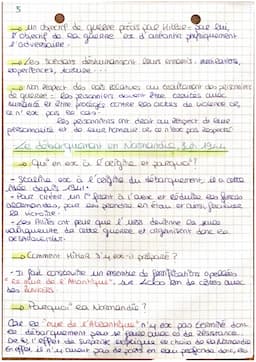 5
→ un objectif de guerre précis par Hitler = pour lui,
l'objectif de la guerre est d'anéantir physiquement
l'adversaire.
→ Les soldats déshumanisent leurs ennemis : maltraités,
expériences, torture...
→ Non respect des lois relatives au traitement des prisonniers
de guerre = les prisonniers doivent être traités avec
humanité et être protégés contre les actes de violence or,
ce n'est pas le cas.
les prisonniers ont droit au respect de leur
personnalité et de leur honneur or ce n'est pas respecté.
Le débarquement en Normandie, 6.6.1944
→ Qui en est à l'origine et pourquoi ?
- Staline est à l'origine du débarquement, il a cette
idée depuis 1941.
- Pour créer un front à l'ouest et réduire les forces
allemandes, pour les prendre en étau et ainsi, faciliter
la victoire.
- Les Alliés ont peur que l'URSS devienne la seule
vainqueure de cette guerre et organisent donc le
débarquement.
→ Comment Hitler s'y est-il préparé ?
- Il fait construire un ensemble de fortifications appelées
"le mur de l'Atlantique", sur 4000 km de côtes avec
des
→ Pourquoi la Normandie ?
Car le "mur de l'Atlantique" n'y est pas terminé donc
le débarquement peut se faire avec de la résistance.
De + l'effet de surprise explique le choix de la Normandie
En effet, il n'y aurait pas de ports en eau profonde donc les